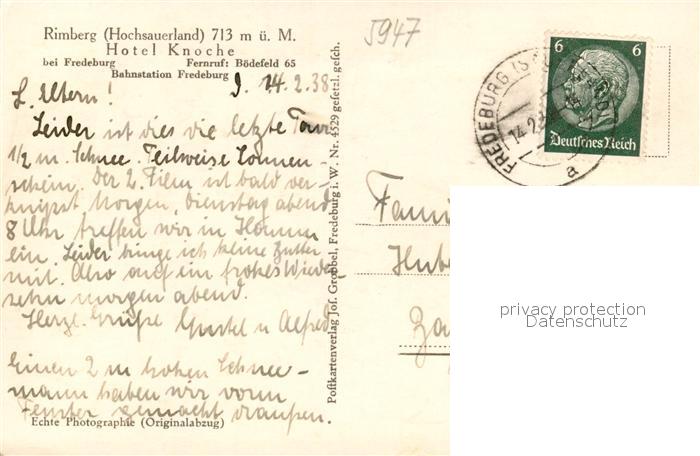 Rimberg (Hochsauerland) 713 m ü. M.
Hotel Knoche
bei Fredeburg Fernruf: Bödefeld 65
Bahnstation Fredeburg
14.2.38
L. Eltern!
Leider ist dies die letzte Tour
1/2 m. Schnee. Teilweise Sonnen-
schein. Der 2. Film ist bald ver-
knipst. Morgen, Dienstag abend
8 Uhr treffen wir in Hamm
ein. Leider bringe ich keine Butter
mit. Also auf ein frohes Wieder-
sehn morgen abend.
Herzl. Grüße Gustel u Alfred
Einen 2 m hohen Schnee-
mann haben wir vorm
Fenster gemacht draußen.
Echte Photographie (Originalabzug)
Postkartenverlag Jos. Grobbel, Fredeburg i. W. Nr. 4529 gesetzl. gesch.
5947
FREDEBURG
14.2.
a
6 6
Deutsches Reich
privacy protection
Datenschutz